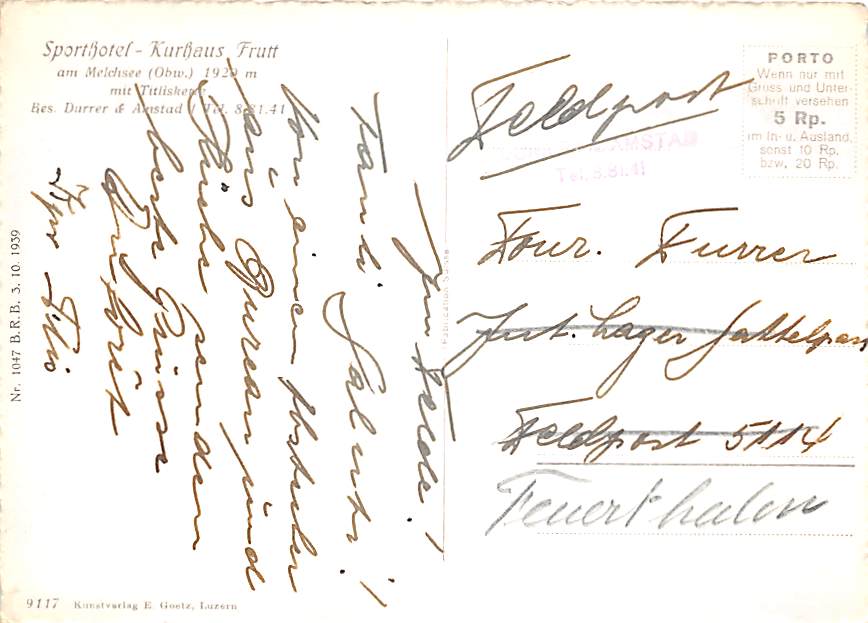 Sporthotel - Kurhaus Frutt
am Melchsee (Obw.) 1920 m
mit Titliskette
Bes. Durrer & Amstad / Tel. 8.81.41
Tanti Saluti!
Von einem Abstecher
ins Bureau und
Küche senden
beste Grüsse
Nr. 1047 B.R.B. 3. 10. 1939
9117 Kunstverlag E. Goetz, Luzern
Fabrication Suisse
Feldpost
AMSTAD
Tel. 8.81.41
PORTO
Wenn nur mit
Gruss und Unter-
schrift versehen
5 Rp.
im In- u. Ausland,
sonst 10 Rp.
bzw. 20 Rp.
Four. Furrer
Int. Lager Sattelpass
Feldpost 5114
Feuerthalen